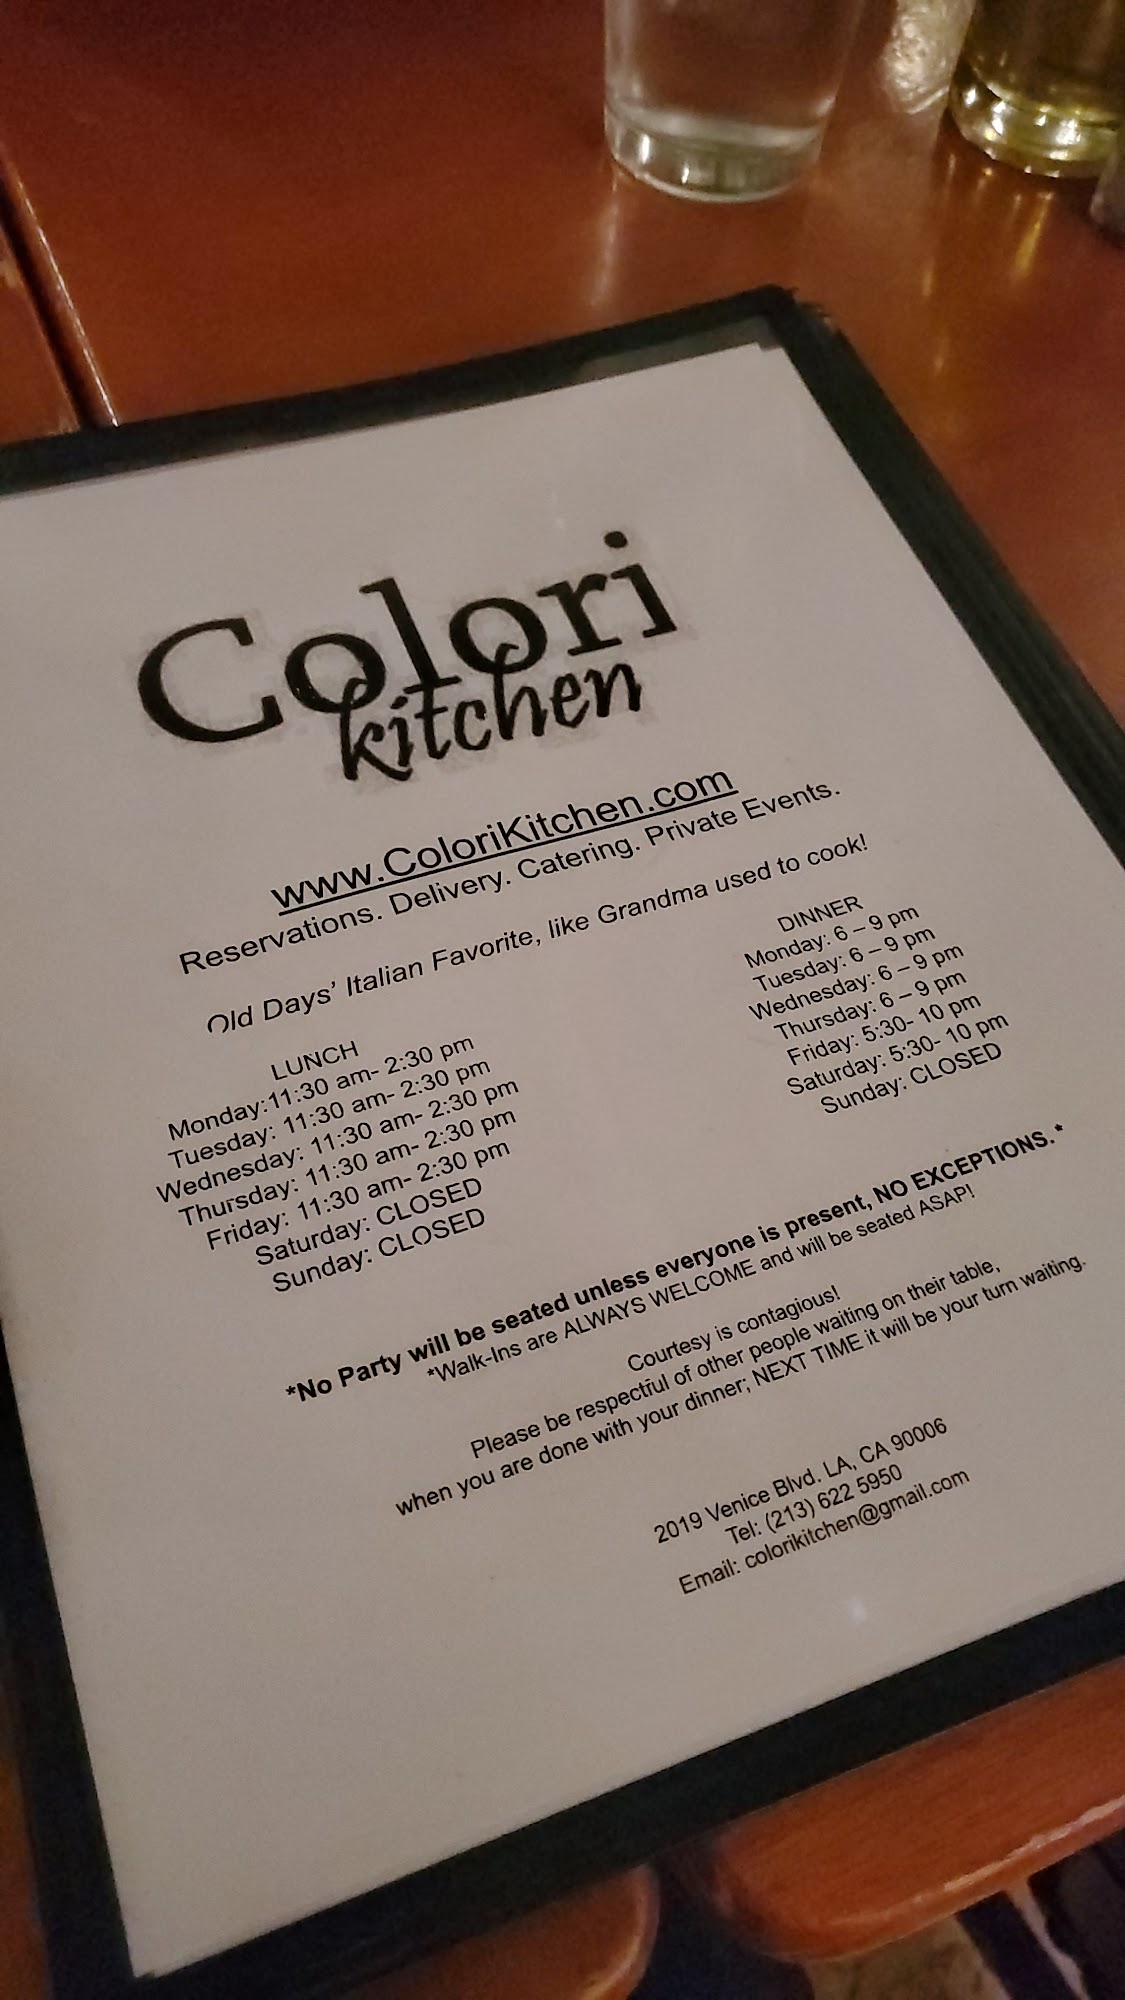 Colori
kitchen
www.ColoriKitchen.com
Reservations. Delivery. Catering. Private Events.
Old Days' Italian Favorite, like Grandma used to cook!
LUNCH
Monday:11:30 am- 2:30 pm
Tuesday: 11:30 am- 2:30 pm
Wednesday: 11:30 am- 2:30 pm
Thursday: 11:30 am- 2:30 pm
Friday: 11:30 am- 2:30 pm
Saturday: CLOSED
Sunday: CLOSED
DINNER
Monday: 6 – 9 pm
Tuesday: 6 – 9 pm
Wednesday: 6 – 9 pm
Thursday: 6 – 9 pm
Friday: 5:30- 10 pm
Saturday: 5:30- 10 pm
Sunday: CLOSED
*No Party will be seated unless everyone is present, NO EXCEPTIONS.*
*Walk-Ins are ALWAYS WELCOME and will be seated ASAP!
Courtesy is contagious!
Please be respectful of other people waiting on their table,
when you are done with your dinner; NEXT TIME it will be your turn waiting.
2019 Venice Blvd. LA, CA 90006
Tel: (213) 622 5950
Email: colorikitchen@gmail.com